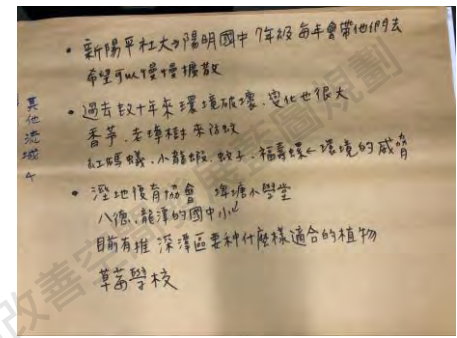 • 新陽平社大→陽明國中 7年級 每年會帶他們去
希望可以慢慢擴散
• 過去數十年來環境破壞、變化也很大
香茅、老樟樹 來防蚊
紅螞蟻、小龍蝦、蚊子、福壽螺←環境的威脅
• 溼地復育協會 埤塘小學堂
八德、龍潭的國中小
目前有推 深潭區要种什麼樣適合的植物
草菇學校
其他流域
改善空
展藍圖規劃